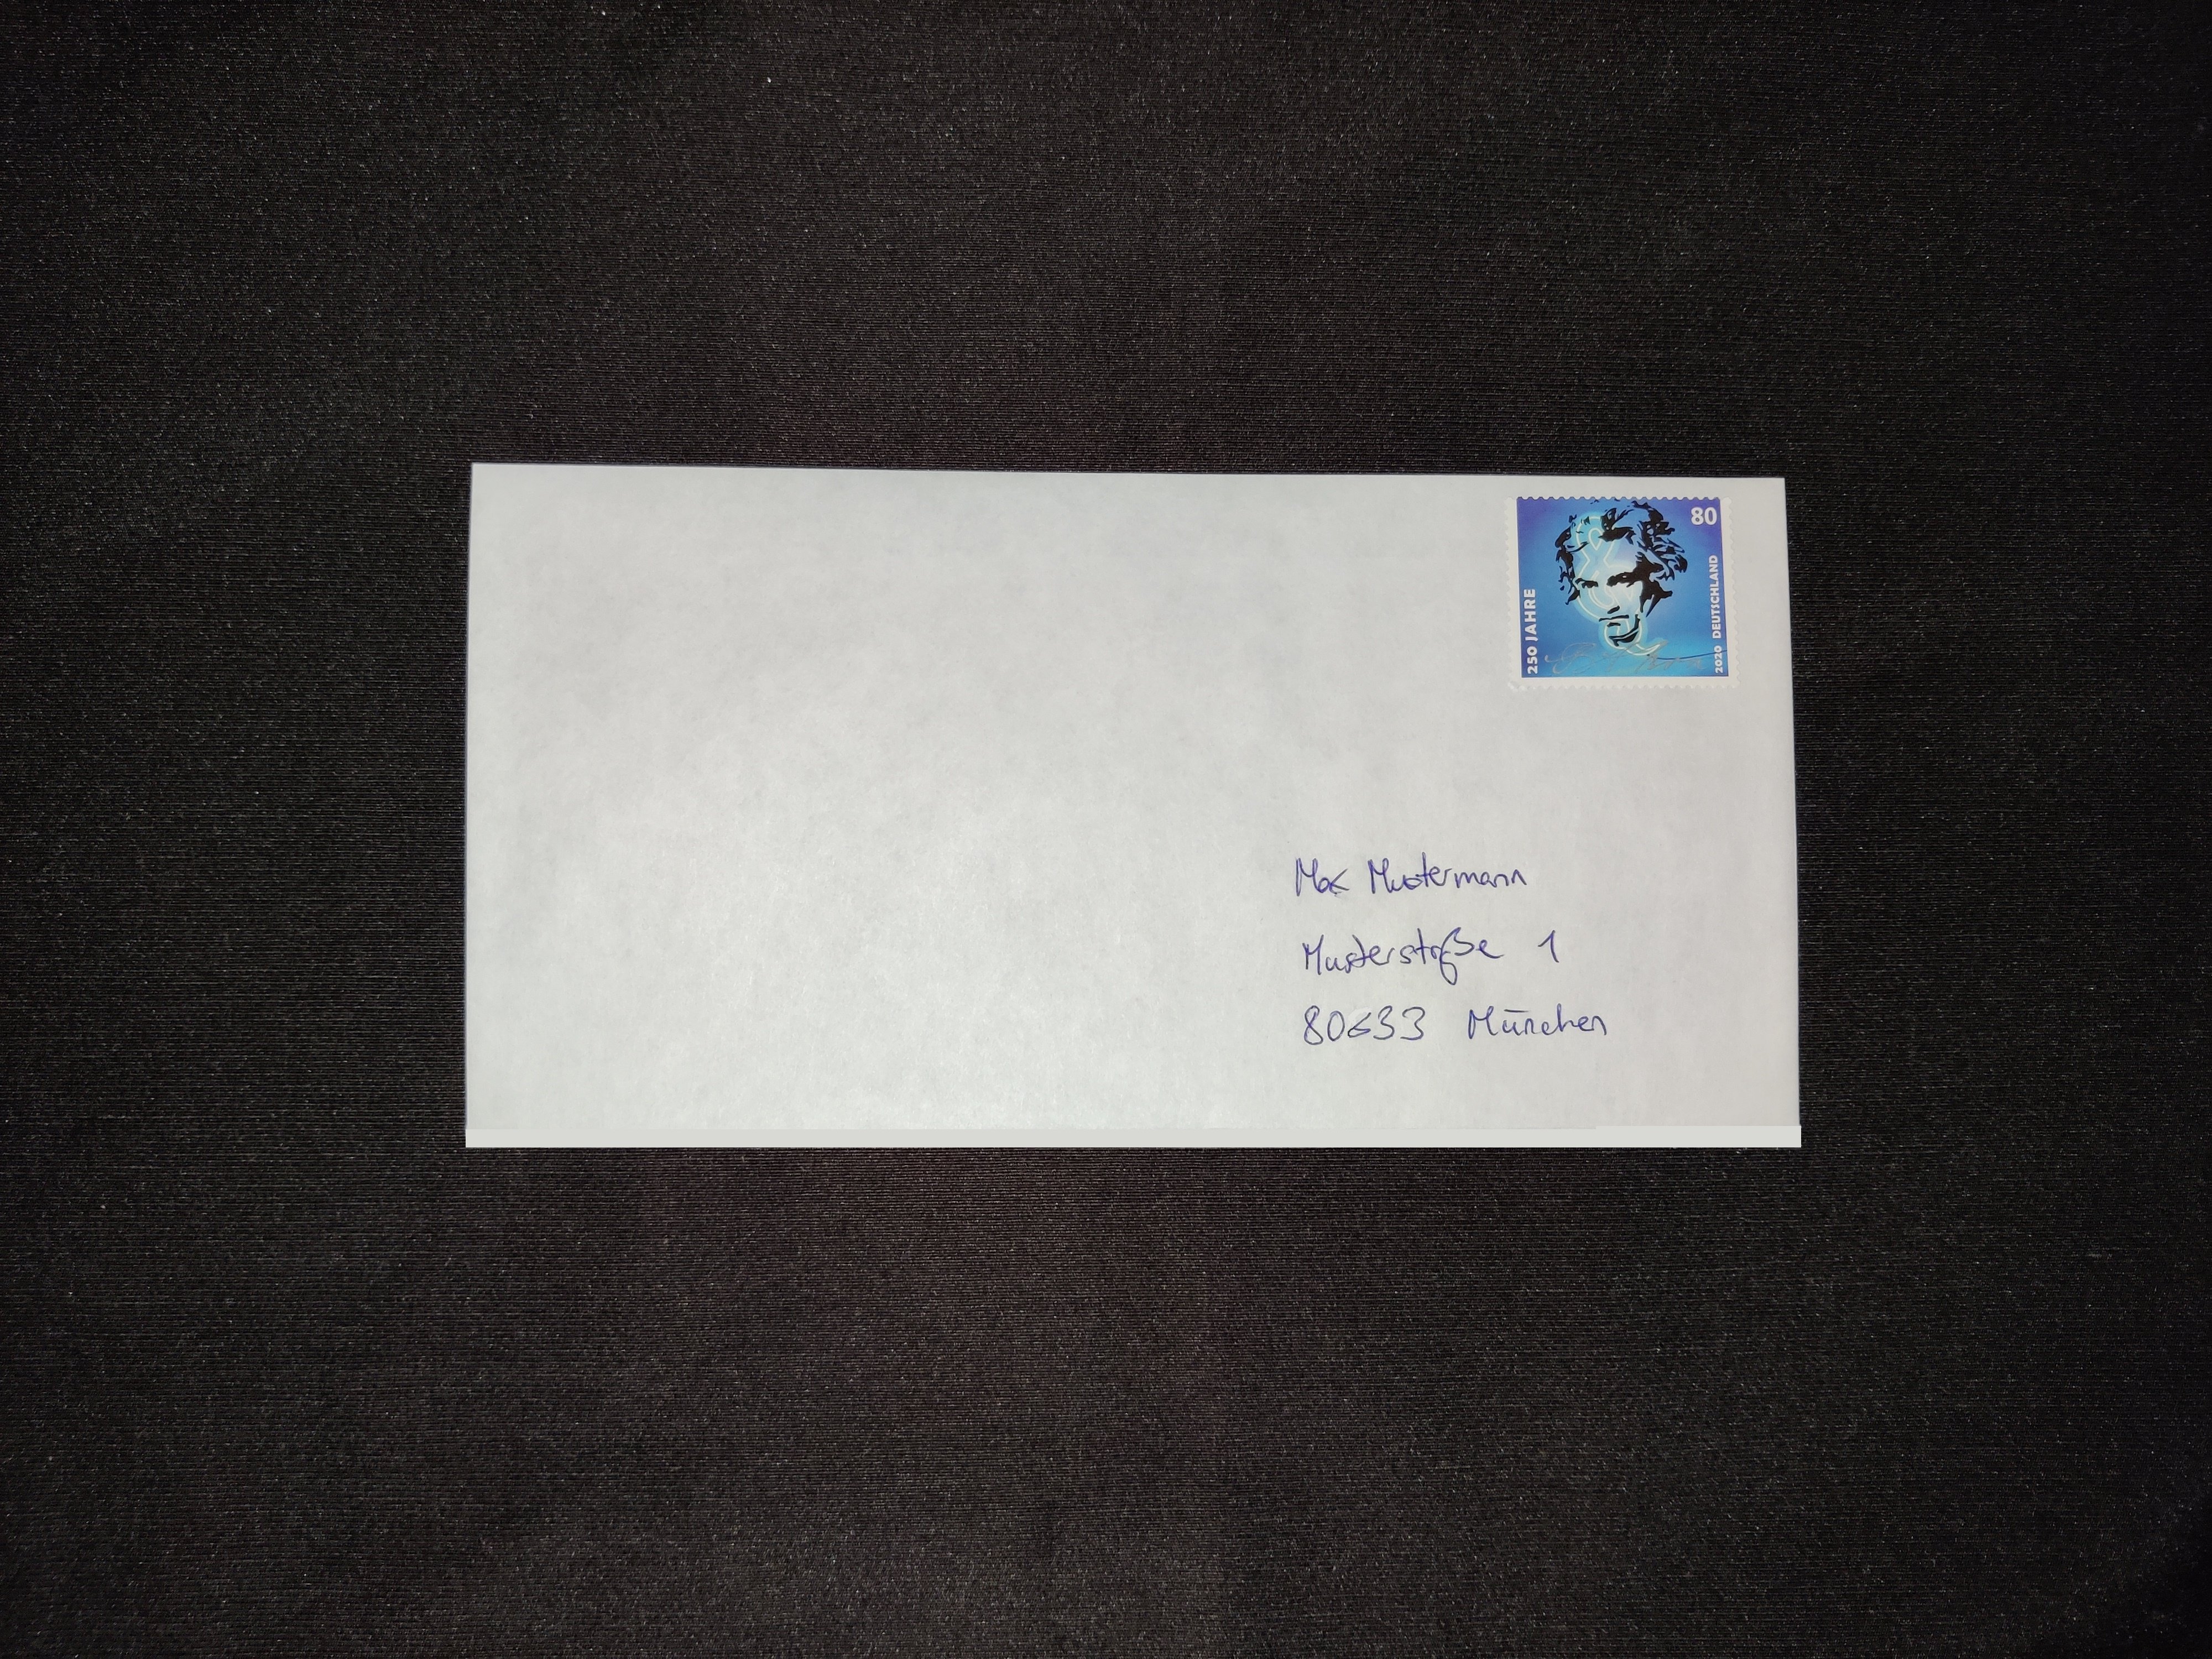 80
250 JAHRE
2020 DEUTSCHLAND
Max Mustermann
Musterstraße 1
80633 München